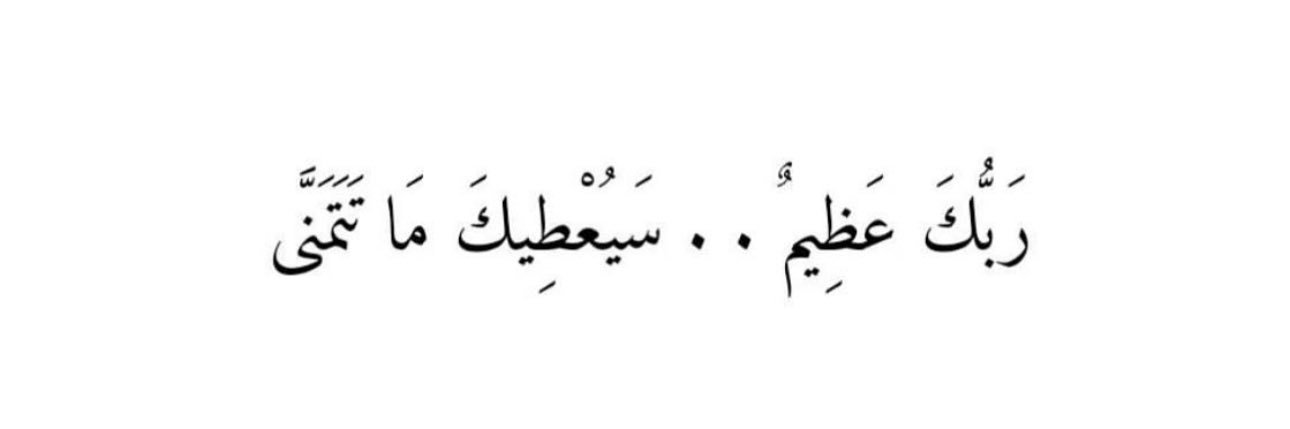 رَبُّكَ عَظِيمٌ . . سَيُعْطِيكَ مَا تَتَمَنَّى